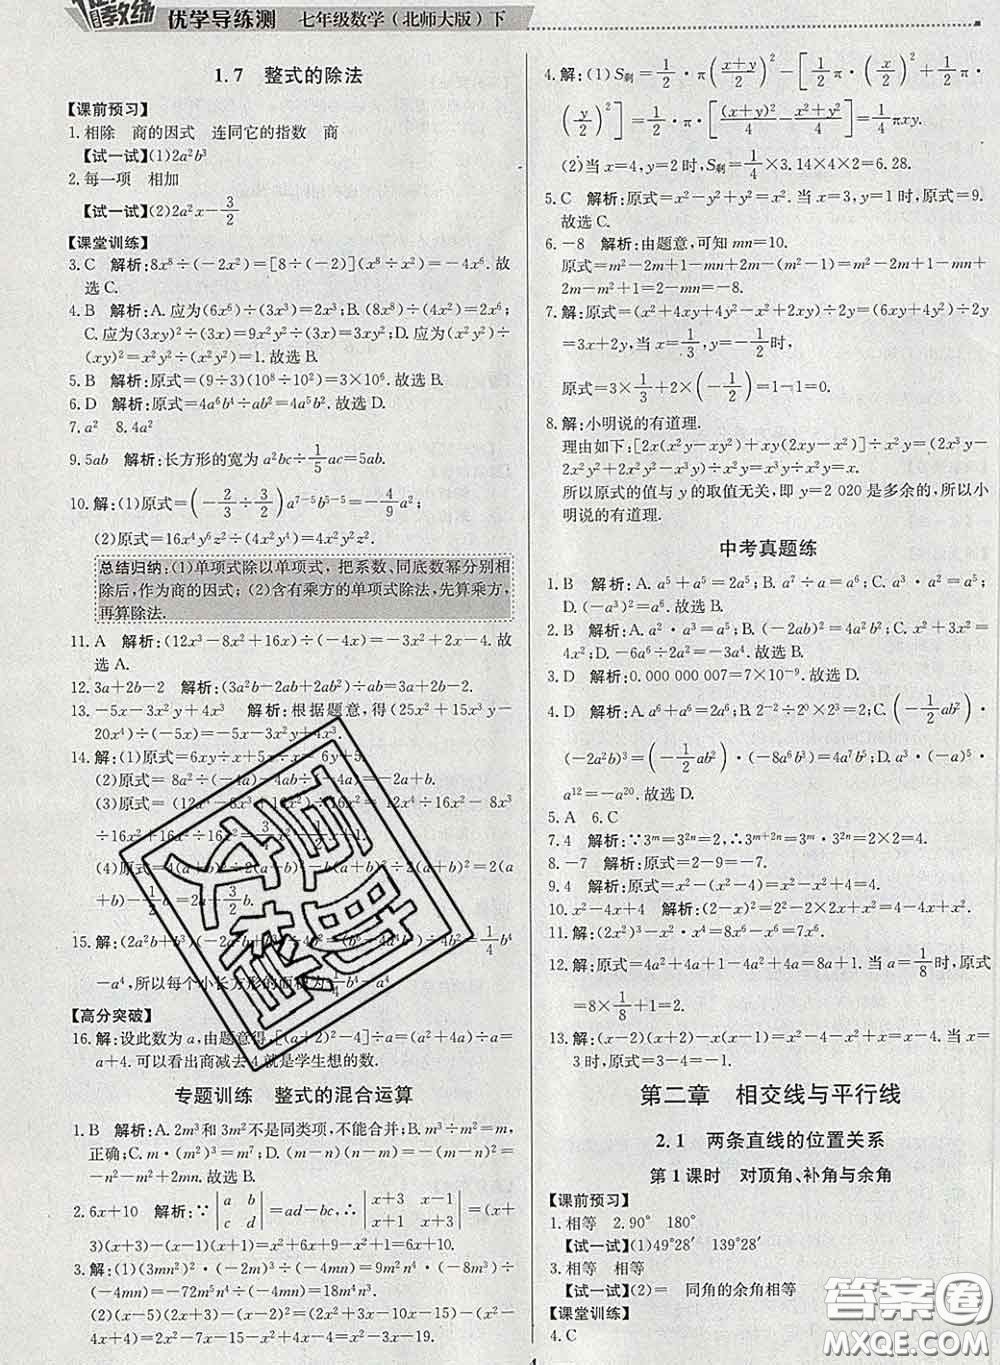 优学导练测 七年级数学(北师大版)下
1.7 整式的除法
【课前预习】
1.相除 商的因式 连同它的指数 商
【试一试】(1)2a²b³
2.每一项 相加
【试一试】(2)2a²x-3/2
【课堂训练】
3.C 解析:8x⁸÷(-2x²)=[8÷(-2)](x⁸÷x²)=-4x⁶.故
选C.
4.B 解析:A.应为(6x⁶)÷(3x³)=2x³;B.(8x⁸)÷(4x²)=2x⁶;
C.应为(3xy)²÷(3x)=9x²y²÷(3x)=3xy²;D.应为(x²y²)÷
(xy)²=(x²y²)÷(x²y²)=1.故选B.
5.B 解析:原式=(9÷3)(10⁸÷10²)=3×10⁶.故选B.
6.D 解析:原式=4a⁶b⁴÷ab²=4a⁵b².故选D.
7.a² 8.4a²
9.5ab 解析:长方形的宽为a²bc÷1/5ac=5ab.
10.解:(1)原式=(-2/3÷3/2)a⁷⁻⁵b⁵⁻⁵=-4/9a²;
(2)原式=16x⁴y⁶z²÷(4x²y⁴)=4x²y²z².
总结归纳:(1)单项式除以单项式,把系数、同底数幂分别相
除后,作为商的因式;(2)含有乘方的单项式除法,先算乘方,
再算除法.
11.A 解析:(12x³-8x²+16x)÷(-4x)=-3x²+2x-4.故
选A.
12.3a+2b-2 解析:(3a²b-2ab+2ab²)÷ab=3a+2b-2.
13.-5x-3x²y+4x³ 解析:根据题意,得(25x²+15x³y-
20x⁴)÷(-5x)=-5x-3x²y+4x³.
14.解:(1)原式=6xy÷x+5x÷x=6y+5.
(2)原式=8a²÷(-4a)-4ab÷(-4a)=-2a+b.
(3)原式=(12x⁴-8x³+16x²)÷16x²=12x⁴÷16x²-8x³
÷16x²+16x²÷16x²=3/4x²-1/2x+1.
(4)原式=4(a+b)²÷2(a+b)-b(a+b)÷2(a+b)=2(a+
b)-1/2b=2a+3/2b.
15.解:(2a²b+b³)(-2a²b+b³)÷4b²=(b⁶-4a⁴b²)÷4b²=1/4b⁴
-a⁴,所以每个小长方形的面积为1/4b⁴-a⁴.
【高分突破】
16.解:设此数为a,由题意得,[(a+2)²-4]÷a=(a²+4a)÷a=
a+4.可以看出商减去4就是学生想的数.
专题训练 整式的混合运算
1.B 解析:A.2m³和3m²不是同类项,不能合并;B.m³÷m²=m,
正确;C.m·(m²)³=m⁷;D.(m-n)(n-m)=-(m-n)²=
-n²-m²+2mn.故选B.
2.6x+10 解析:∵|a b; c d|=ad-bc,∴|x+3 x-1; x+3 x+1|=(x+
3)(x+1)-(x+3)(x-1)=6x+10.
3.解:(1)(3mn²)²·(-8m³n²)÷(-4mn²)=9m²n⁴·(-8m³n²)
÷(-4mn²)=18m⁴n⁴.
(2)(x-2)(2x+5)-2x(x-4)=2x²+5x-4x-10-2x²+8x
4.解:(1)S剩=1/2·π((x+y)/2)²-[1/2·π·(x/2)²+1/2π·
(y/2)²]=1/2·π·[(x+y)²/4-(x²+y²)/4]=1/4πxy.
(2)当x=4,y=2时,S剩=1/4×3.14×4×2=6.28.
5.C 解析:原式=x²-y²+y²=x².当x=3,y=1时,原式=9.
故选C.
6.-8 解析:由题意,可知mn=10.
原式=m²-2m+1+mn-2m-(m²-1)=m²-2m+1+mn+
2m-m²-8=-8.
7.解:原式=(x²+4xy+4y²-x²+2xy)÷2y=(6xy+4y²)÷2y
=3x+2y,当x=1/3,y=-1/2时,
原式=3×1/3+2×(-1/2)=1-1=0.
8.解:小明说的有道理.
理由如下:[2x(x²y-xy²)+xy(2xy-x²)]÷x²y=(2x³y-
2x²y²+2x²y²-x³y)÷x²y=x³y÷x²y=x.
所以原式的值与y的取值无关,即y=2 020是多余的,所以小
明说的有道理.
中考真题练
1.B 解析:A.a⁵+a⁵=2a⁵;B.a⁷÷a=a⁶;C.a³·a²=a⁵;
D.(-a³)²=a⁶.故选B.
2.B 解析:A.a²·a=a³;B.(-2ab)²=4a²b²;C.x²+3x²=
4x²;D.-6a⁶÷2a²=-3a⁴.故选B.
3.D 解析:0.000 000 007=7×10⁻⁹.故选D.
5.A 6.C
7.4 解析:∵3ᵐ=3²ⁿ=2,∴3ᵐ⁺²ⁿ=3ᵐ·3²ⁿ=2×2=4.
8.-7 解析:原式=2-9=-7.
9.4 解析:原式=x²-(x²-4)=x²-x²+4=4.
10.x²-4x+4 解析:原式=(x-2)²=2²-2×2x+x²=4-4x+x².
11.解:(2x²)³-x²·x⁴=8x⁶-x⁶=7x⁶.
12.解:原式=4a²+4a+1-4a²+4a=8a+1.当a=1/8时,原式
=8×1/8+1=2.
13.解:(x-2)(x+2)-x(x-1)=x²-4-x²+x=x-4.当x=
3时,原式=3-4=-1.
第二章 相交线与平行线
2.1 两条直线的位置关系
第1课时 对顶角、补角与余角
【课前预习】
1.相等 2.90° 180°
【试一试】(1)49°28′ 139°28′
3.相等 相等
【试一试】(2)= 同角的余角相等
【课堂训练】
4.C
答案圈
MXQE.COM